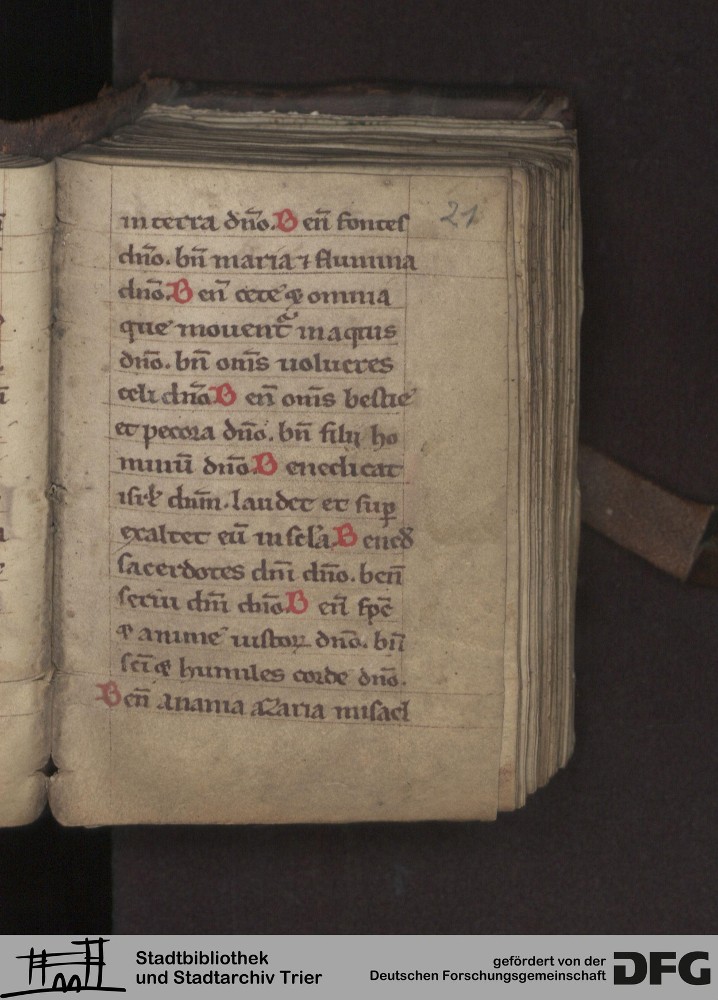 in terra dño. Beñ fontes
21
dño. bñ maria ⁊ flumina
dño. Beñ cete ⁊ omnia
que mouent᷑ in aquis
dño. bñ om̃s uolucres
celi dño Beñ om̃s bestie
et pecora dño. bñ filii ho
minū dño Benedicat
isrł dñm. laudet et sup̱
exaltet eū in scła. Bened̄
sacerdotes dñi dño. beñ
serui dñi dño Beñ sp̄c
⁊ anime iustoꝝ dño. bñ
sc̄i ⁊ humiles corde dño.
Beñ anania azaria misael
Stadtbibliothek
und Stadtarchiv Trier
gefördert von der
Deutschen Forschungsgemeinschaft
DFG